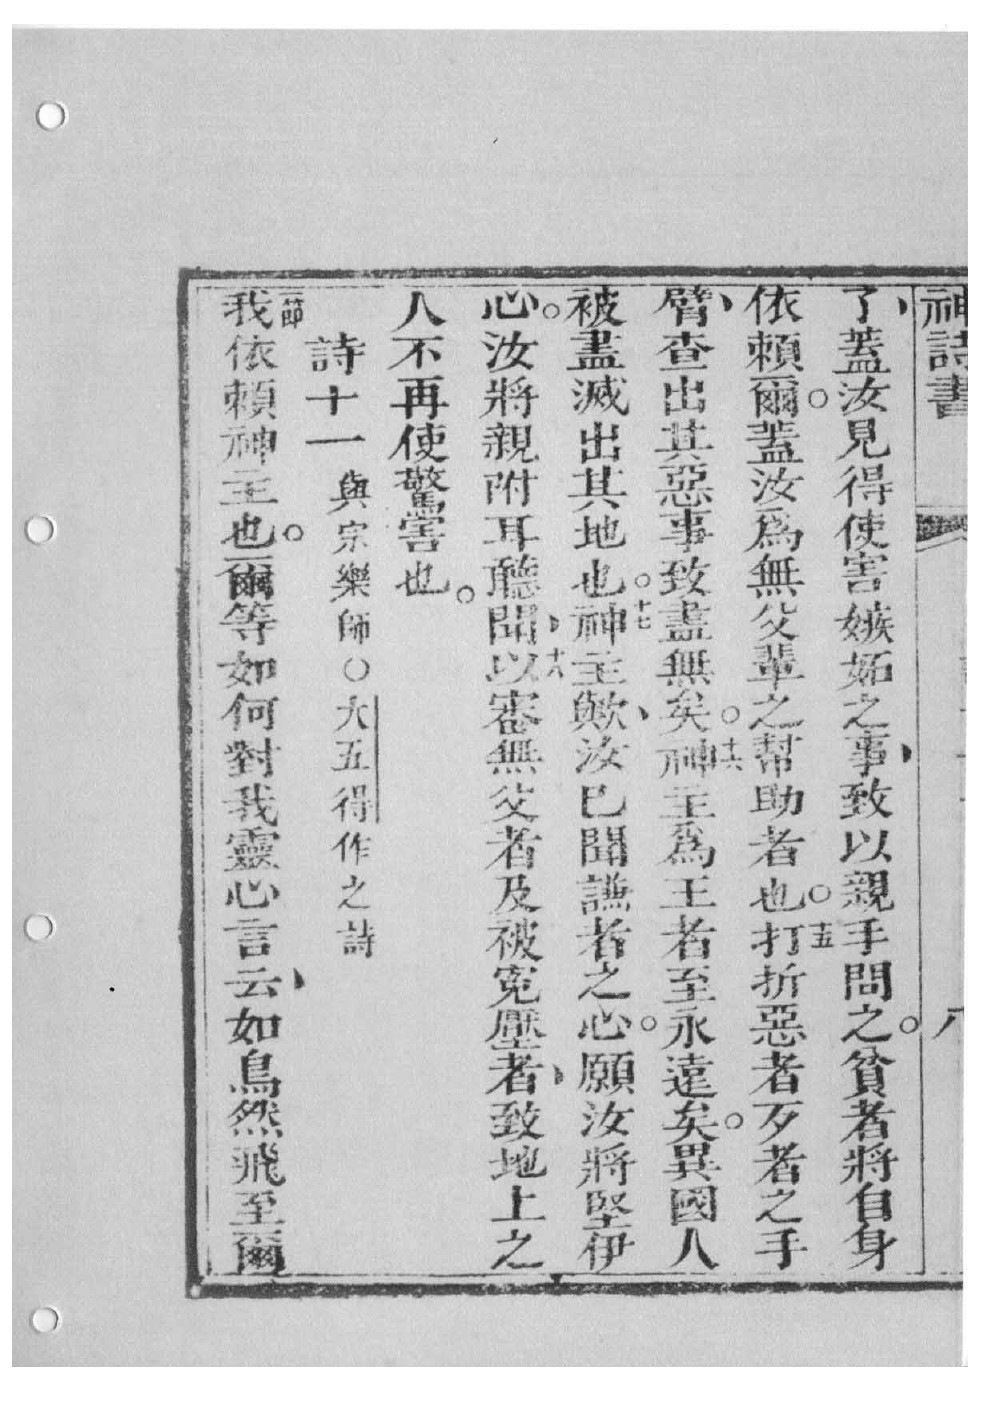 神詩書
八
了、蓋汝見得使害嫉妬之事、致以親手問之。貧者將自身
依賴爾。蓋汝爲無父輩之幫助者也。十五打折惡者歹者之手
臂、查出其惡事致盡無矣。十六神主爲王者至永遠矣。異國人
被盡滅出其地也。十七神主歟、汝已聞謙者之心。願汝將堅伊
心。汝將親附耳聽聞、十八以審無父者及被冤壓者、致地上之
人不再使驚害也。
詩十一 與宗樂師○大五得作之詩
一節我依賴神主也。爾等如何對我靈心言云、如鳥然飛至爾